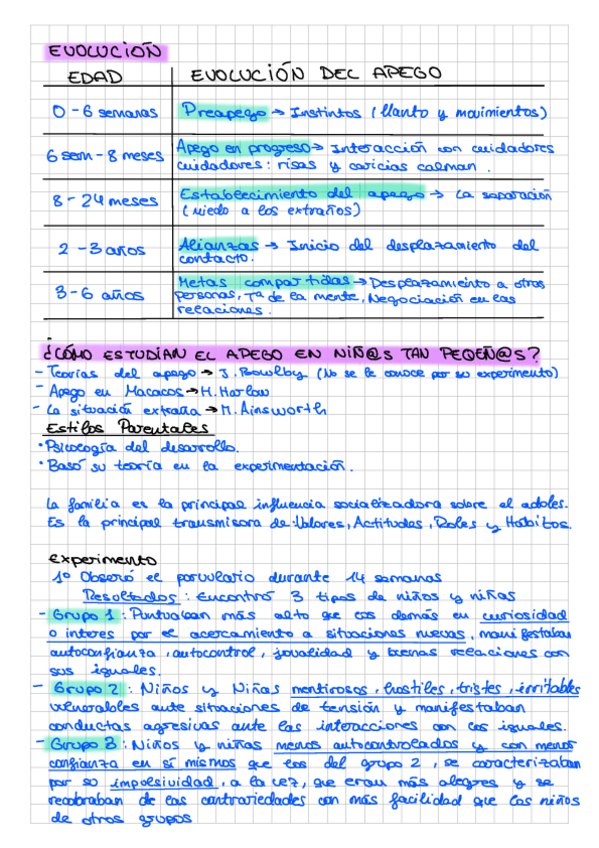 EVOLUCIÓN
EDAD EVOLUCIÓN DEL APEGO
0 - 6 semanas Preapego → Instintos (llanto y movimientos)
6 sem - 8 meses Apego en progreso → Interacción con cuidadores
cuidadores: risas y caricias calman.
8 - 24 meses Establecimiento del apego → La separación
(miedo a los extraños)
2 - 3 años Alianzas → Inicio del desplazamiento del
contacto.
3 - 6 años Metas compartidas → Desplazamiento a otras
personas, Tª de la mente, Negociación en las
relaciones.
¿CÓMO ESTUDIAN EL APEGO EN NIÑ@S TAN PEQEÑ@S?
- Teorías del apego → J. Bowlby (No se le conoce por su experimento)
- Apego en Macacos → H. Harlow
- La situación extraña → M. Ainsworth
Estilos Parentales
• Psicología del desarrollo.
• Basó su teoría en la experimentación.
La familia es la principal influencia socializadora sobre el adoles.
Es la principal transmisora de: Valores, Actitudes, Roles y Hábitos.
Experimento
1º Observó el parvulario durante 14 semanas
Resultados: Encontró 3 tipos de niños y niñas
- Grupo 1: Puntuaban más alto que los demás en curiosidad
o interes por el acercamiento a situaciones nuevas, manifestaban
autoconfianza, autocontrol, jovialidad y buenas relaciones con
sus iguales.
- Grupo 2: Niños y Niñas mentirosos, hostiles, tristes, irritables
vulnerables ante situaciones de tensión y manifestaban
conductas agresivas ante las interacciones con los iguales.
- Grupo 3: Niños y niñas menos autocontrolados y con menos
confianza en sí mismos que los del grupo 2, se caracterizaban
por su impulsividad, a la vez, que eran más alegres y se
recobraban de las contrariedades con más facilidad que los niños
de otros grupos